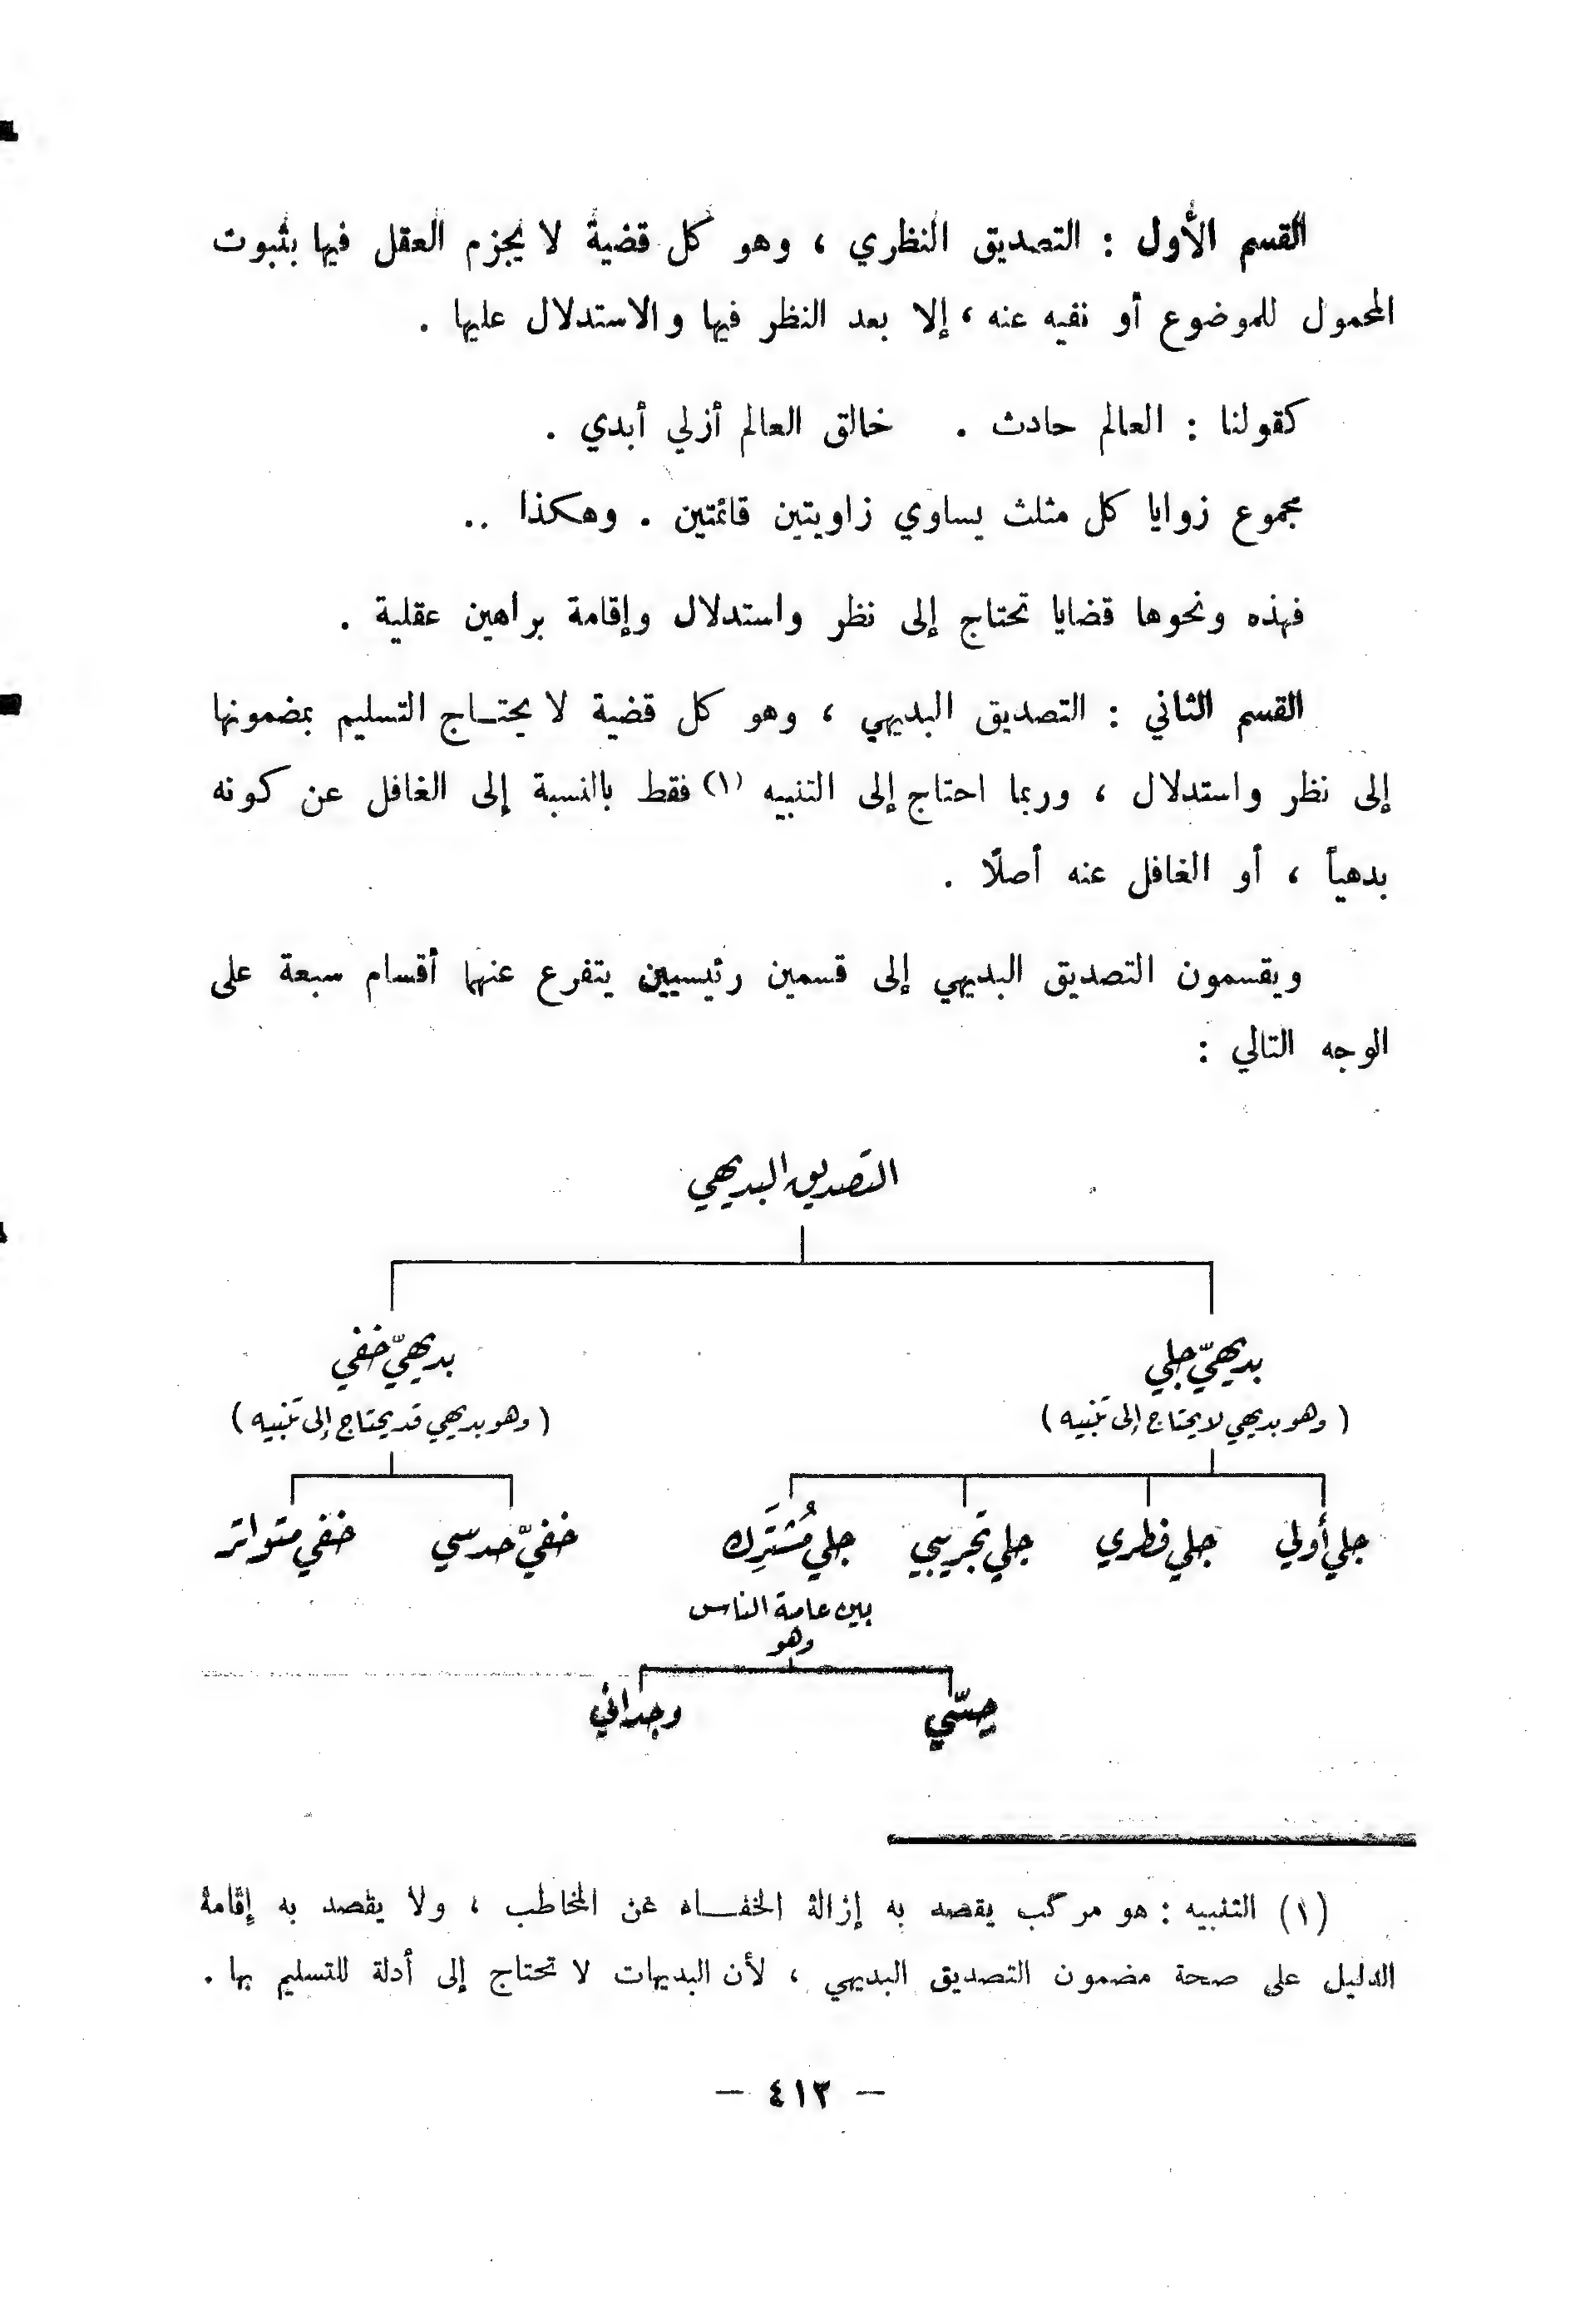 القسم الأول : التصديق النظري ، وهو كل قضية لا يجزم العقل فيها بثبوت
المحمول للموضوع أو نفيه عنه ، إلا بعد النظر فيها والاستدلال عليها .
كقولنا : العالم حادث . خالق العالم أزلي أبدي .
مجموع زوايا كل مثلث يساوي زاويتين قائمتين . وهكذا ..
فهذه ونحوها قضايا تحتاج إلى نظر واستدلال وإقامة براهين عقلية .
القسم الثاني : التصديق البديهي ، وهو كل قضية لا يحتـاج التسليم بمضمونها
إلى نظر واستدلال ، وربما احتاج إلى التنبيه (١) فقط بالنسبة إلى الغافل عن كونه
بدهياً ، أو الغافل عنه أصلًا .
ويقسمون التصديق البديهي إلى قسمين رئيسيين يتفرع عنهما أقسام سبعة على
الوجه التالي :
التصديق البديهي
بديهيّ جلي
بديهيّ خفي
( وهو بديهي لا يحتاج إلى تنبيه )
( وهو بديهي قد يحتاج إلى تنبيه )
جلي أولي
جلي فطري
جلي تجريبي
جلي مُشْتَرِك
خفيّ حدسي
خفي متواتر
بين عامة الناس
وهو
حِسّي
وجداني
(١) التنبيه : هو مركب يقصد به إزالة الخفـاء عن المخاطب ، ولا يقصد به إقامة
الدليل على صحة مضمون التصديق البديهي ، لأن البديهات لا تحتاج إلى أدلة للتسليم بها .
— ٤١٣ —